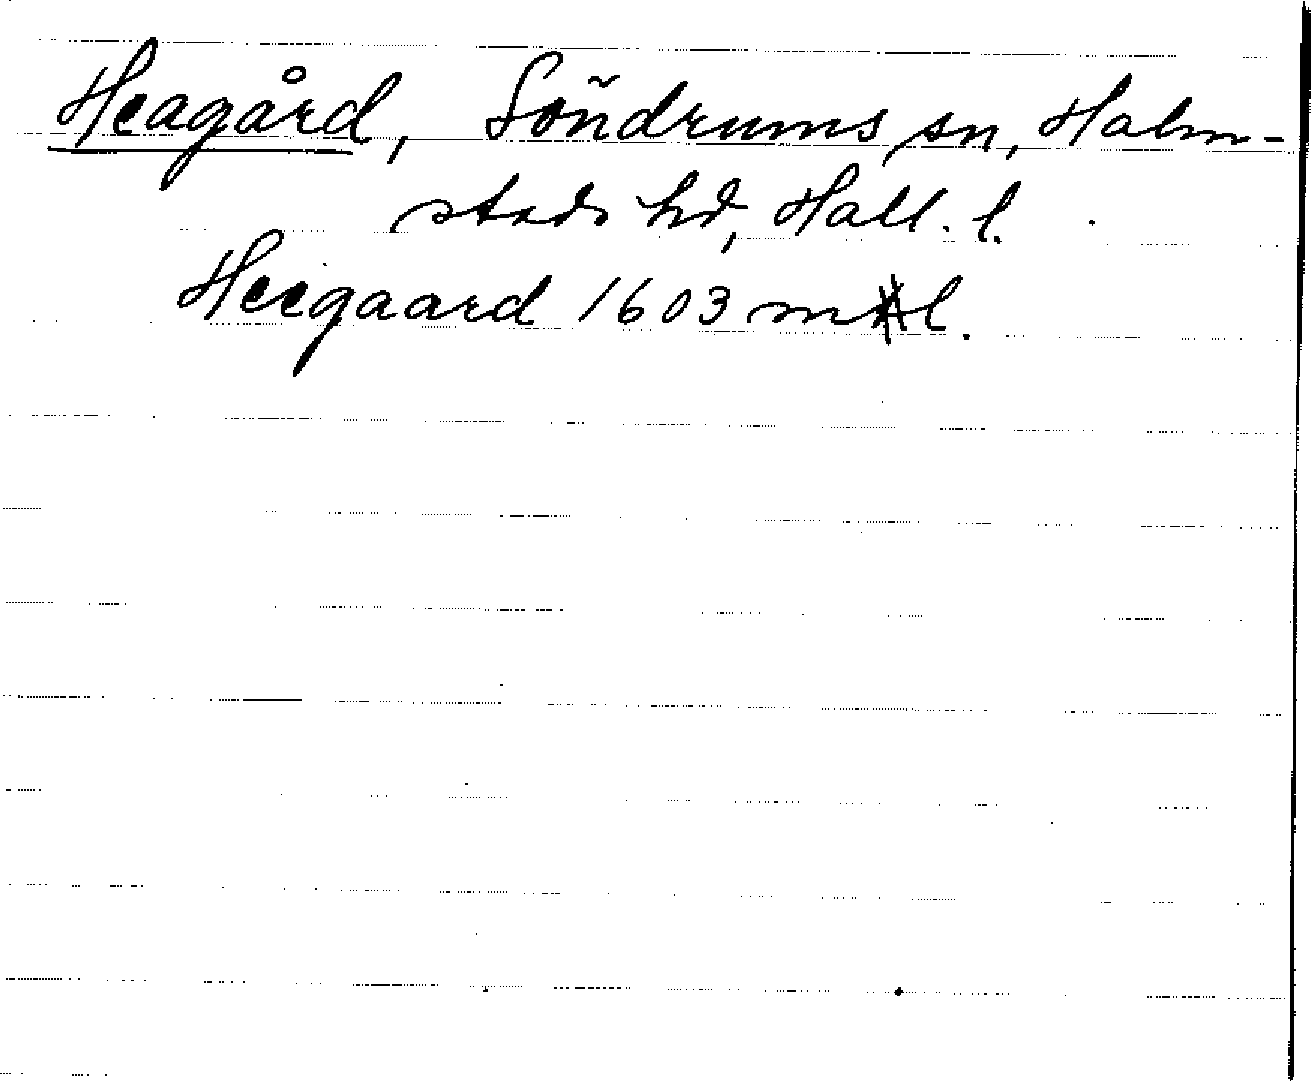 Heagård, Söndrums sn, Halm-
stads hd, Hall. l.
Heegaard 1603 ml.